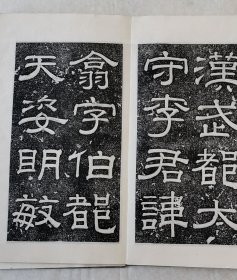 漢武都大
守李君諱
翕字伯都
天姿明敏